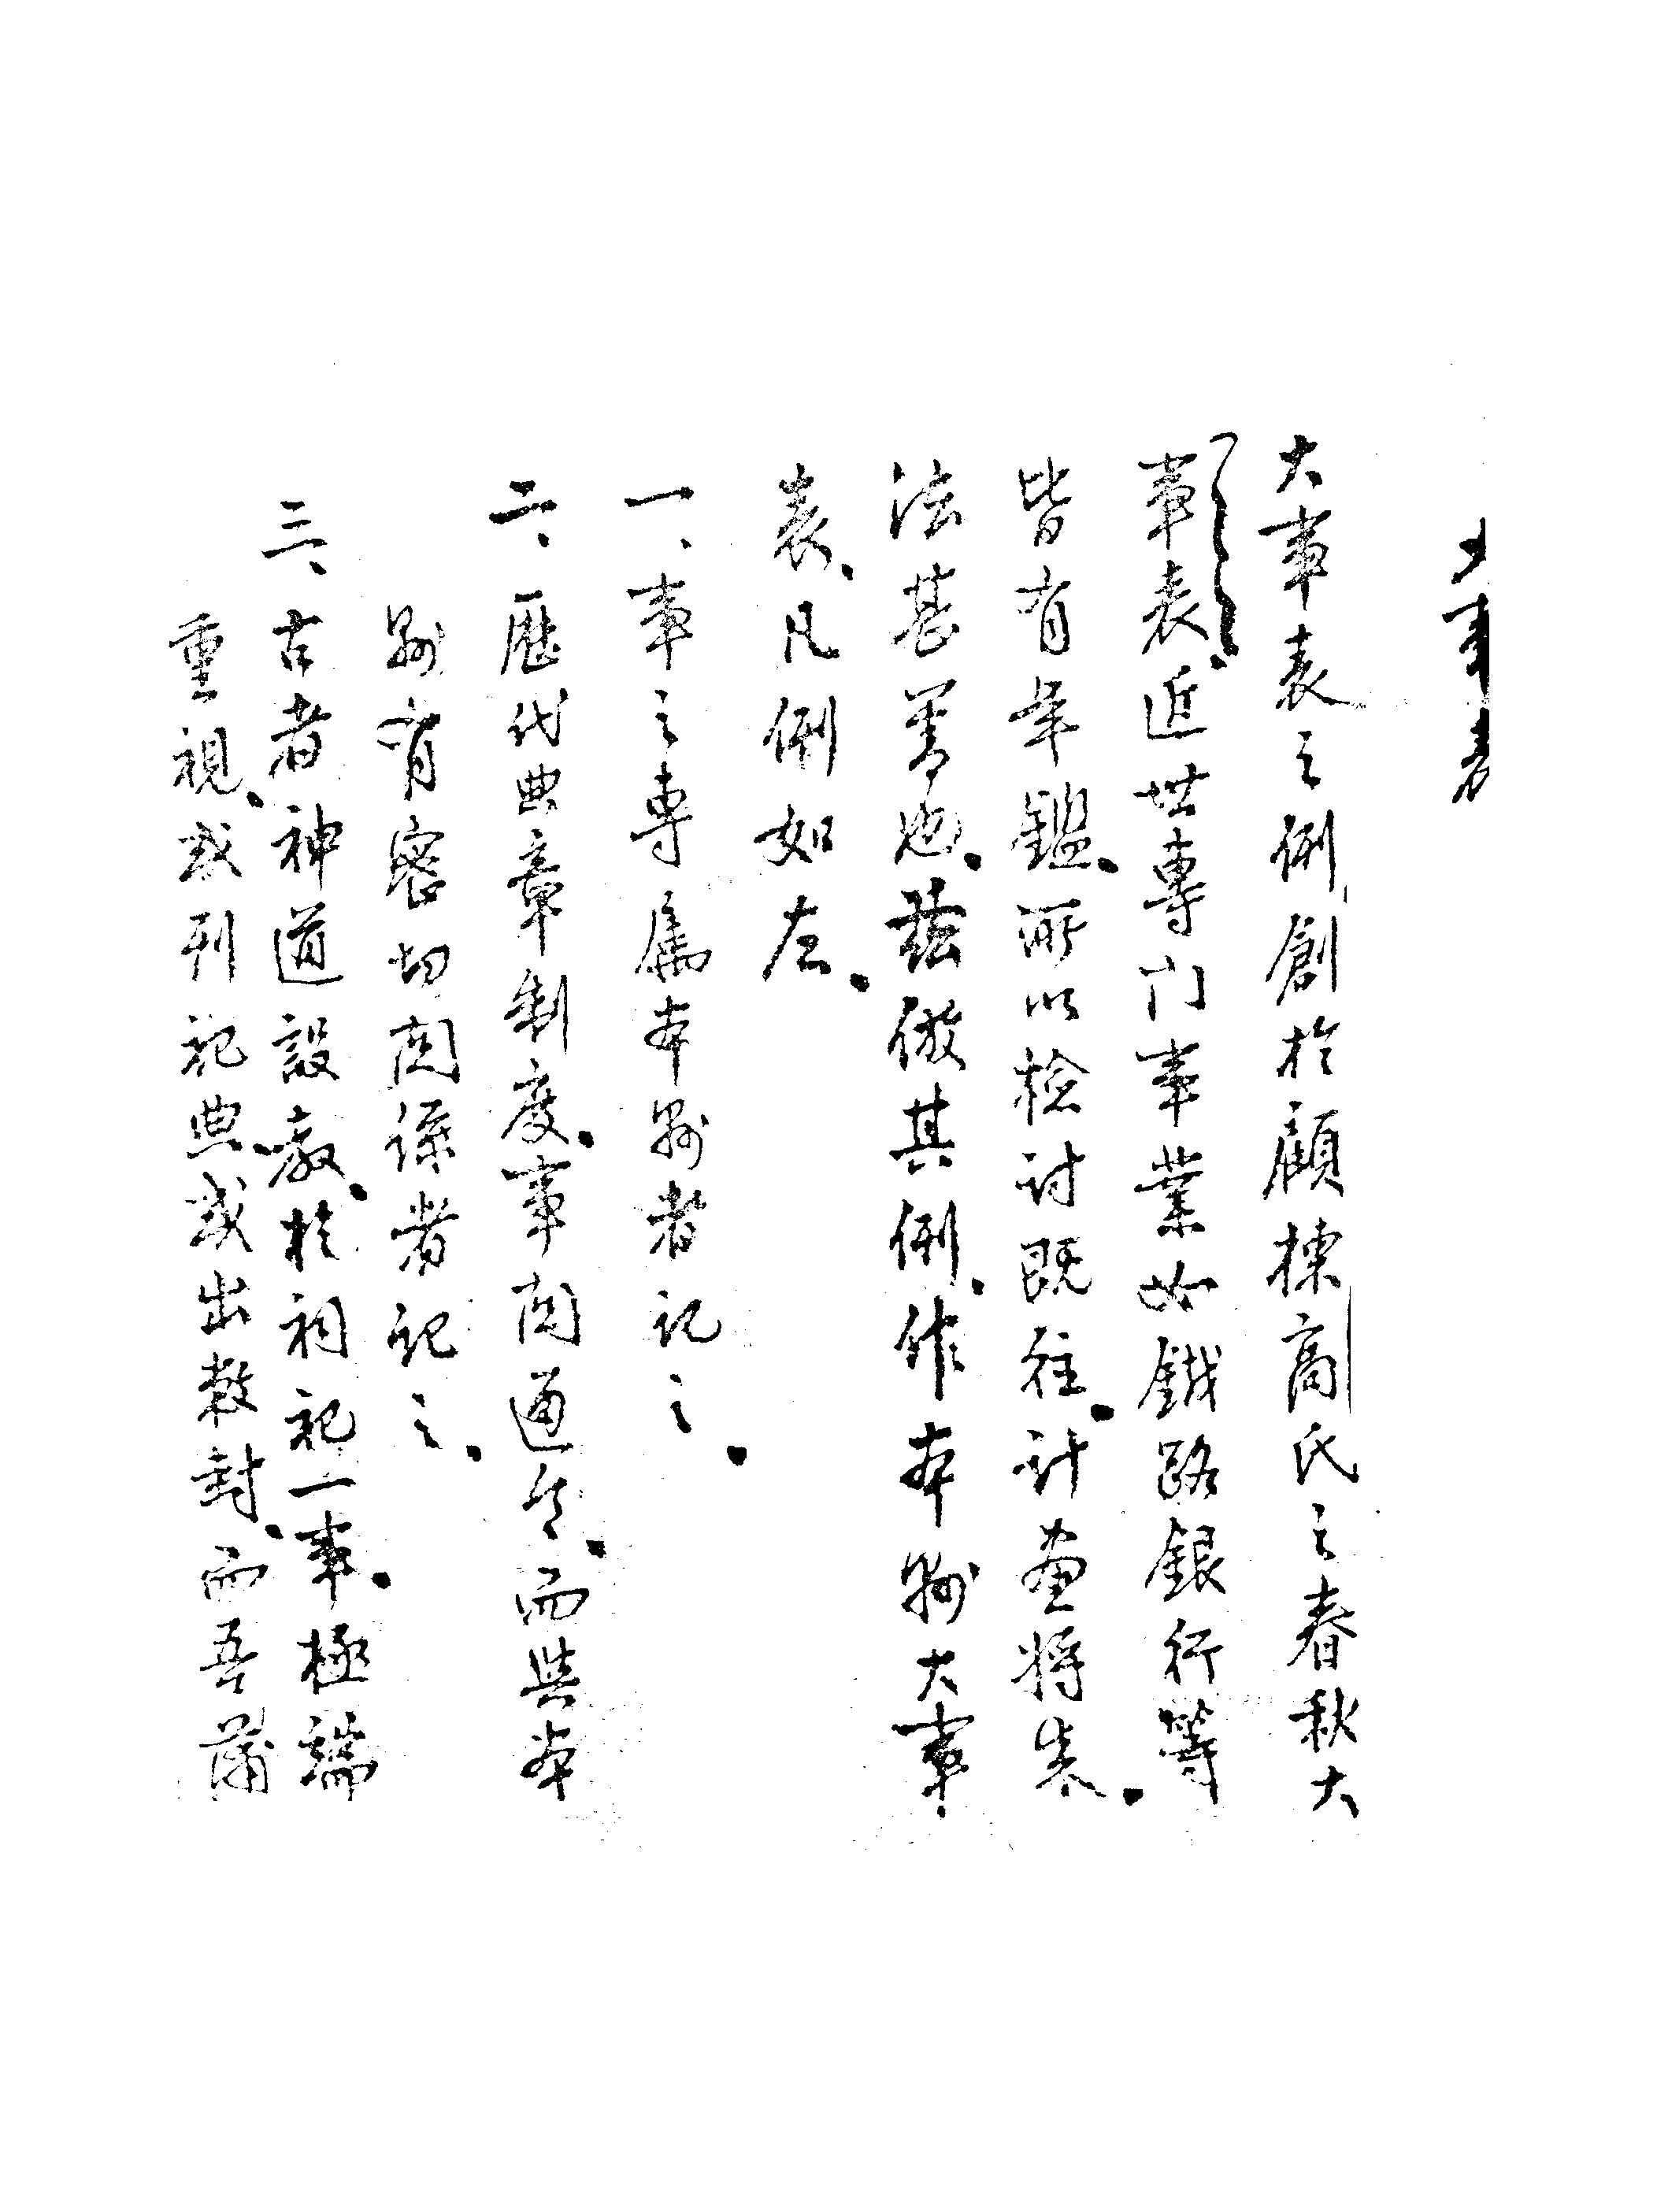 大事表
大事表之例創於顧棟高氏之春秋大
事表、近世專门事業如鉄路銀行等
皆有年鑑、所以檢討既往、計畫將來、
法甚善也、兹倣其例、作本縣大事
表、凡例如左、
一、事之專属本縣者記之、
二、歷代典章制度、事関通令、而與本
縣有密切関係者記之、
三、古者神道設教、於祠祀一事、極端
重視、或列祀典或出敕封、而吾蒲